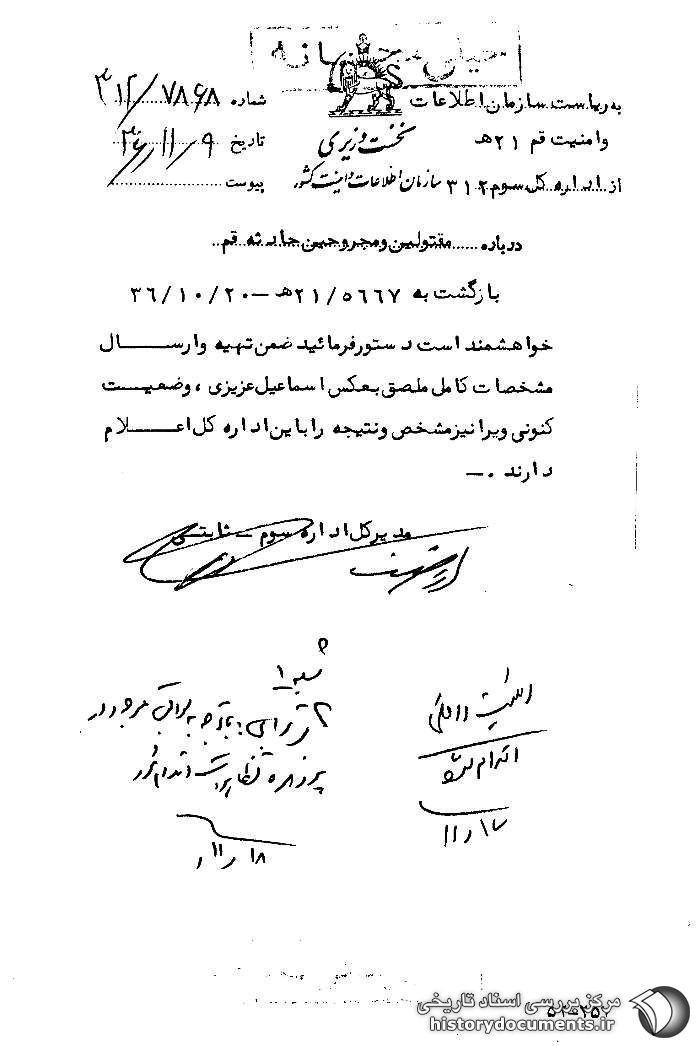 خیلی محرمانه
به ریاست سازمان اطلاعات
و امنیت قم ۲۱هـ
از اداره کل سوم ۳۱۲
نخست وزیری
سازمان اطلاعات و امنیت کشور
شماره ۳۱۲/۷۸۶۸
تاریخ ۳۶/۱۱/۹
پیوست
درباره ...... مقتولین و مجروحین حادثه قم..
بازگشت به ۲۱/۵۶۶۷هـ – ۳۶/۱۰/۲۰
خواهشمند است دستور فرمائید ضمن تهیه و ارسال
مشخصات کامل ملصق بعکس اسماعیل عزیزی ، وضعیت
کنونی ویرا نیز مشخص و نتیجه را باین اداره کل اعلام
دارند .–
مدیر کل اداره سوم – ثابتی
اقدام شود
۱۷ ر ۱۱
۱۸ ر ۱۱ ر
مرکز بررسی اسناد تاریخی
historydocuments.ir